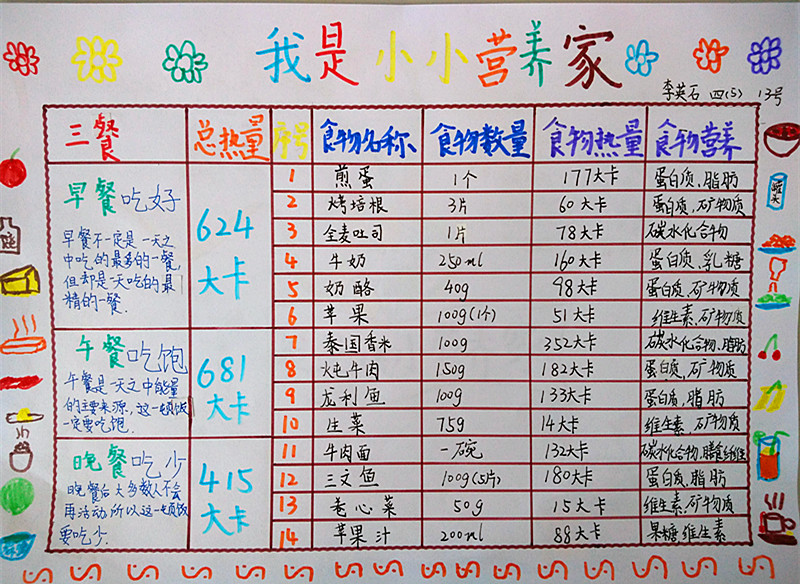 我是小小营养家
李英石 四(5) 13号
三餐 总热量 序号 食物名称 食物数量 食物热量 食物营养
早餐吃好
早餐不一定是一天之
中吃的最多的一餐,
但却是一天吃的最
精的一餐.
624
大卡
1 煎蛋 1个 177大卡 蛋白质、脂肪
2 烤培根 3片 60大卡 蛋白质、矿物质
3 全麦吐司 1片 78大卡 碳水化合物
4 牛奶 250ml 160大卡 蛋白质、乳糖
5 奶酪 40g 98大卡 蛋白质、矿物质
6 苹果 100g(1个) 51大卡 维生素、矿物质
午餐吃饱
午餐是一天之中能量
的主要来源,这一顿饭
一定要吃饱.
681
大卡
7 泰国香米 100g 352大卡 碳水化合物、脂肪
8 炖牛肉 150g 182大卡 蛋白质、矿物质
9 龙利鱼 100g 133大卡 蛋白质、脂肪
10 生菜 75g 14大卡 维生素、矿物质
晚餐吃少
晚餐后大多数人不会
再活动所以这一顿饭
要吃少.
415
大卡
11 牛肉面 一碗 132大卡 碳水化合物、膳食纤维
12 三文鱼 100g(5片) 180大卡 蛋白质、脂肪
13 卷心菜 50g 15大卡 维生素、矿物质
14 苹果汁 200ml 88大卡 果糖 维生素
罐头